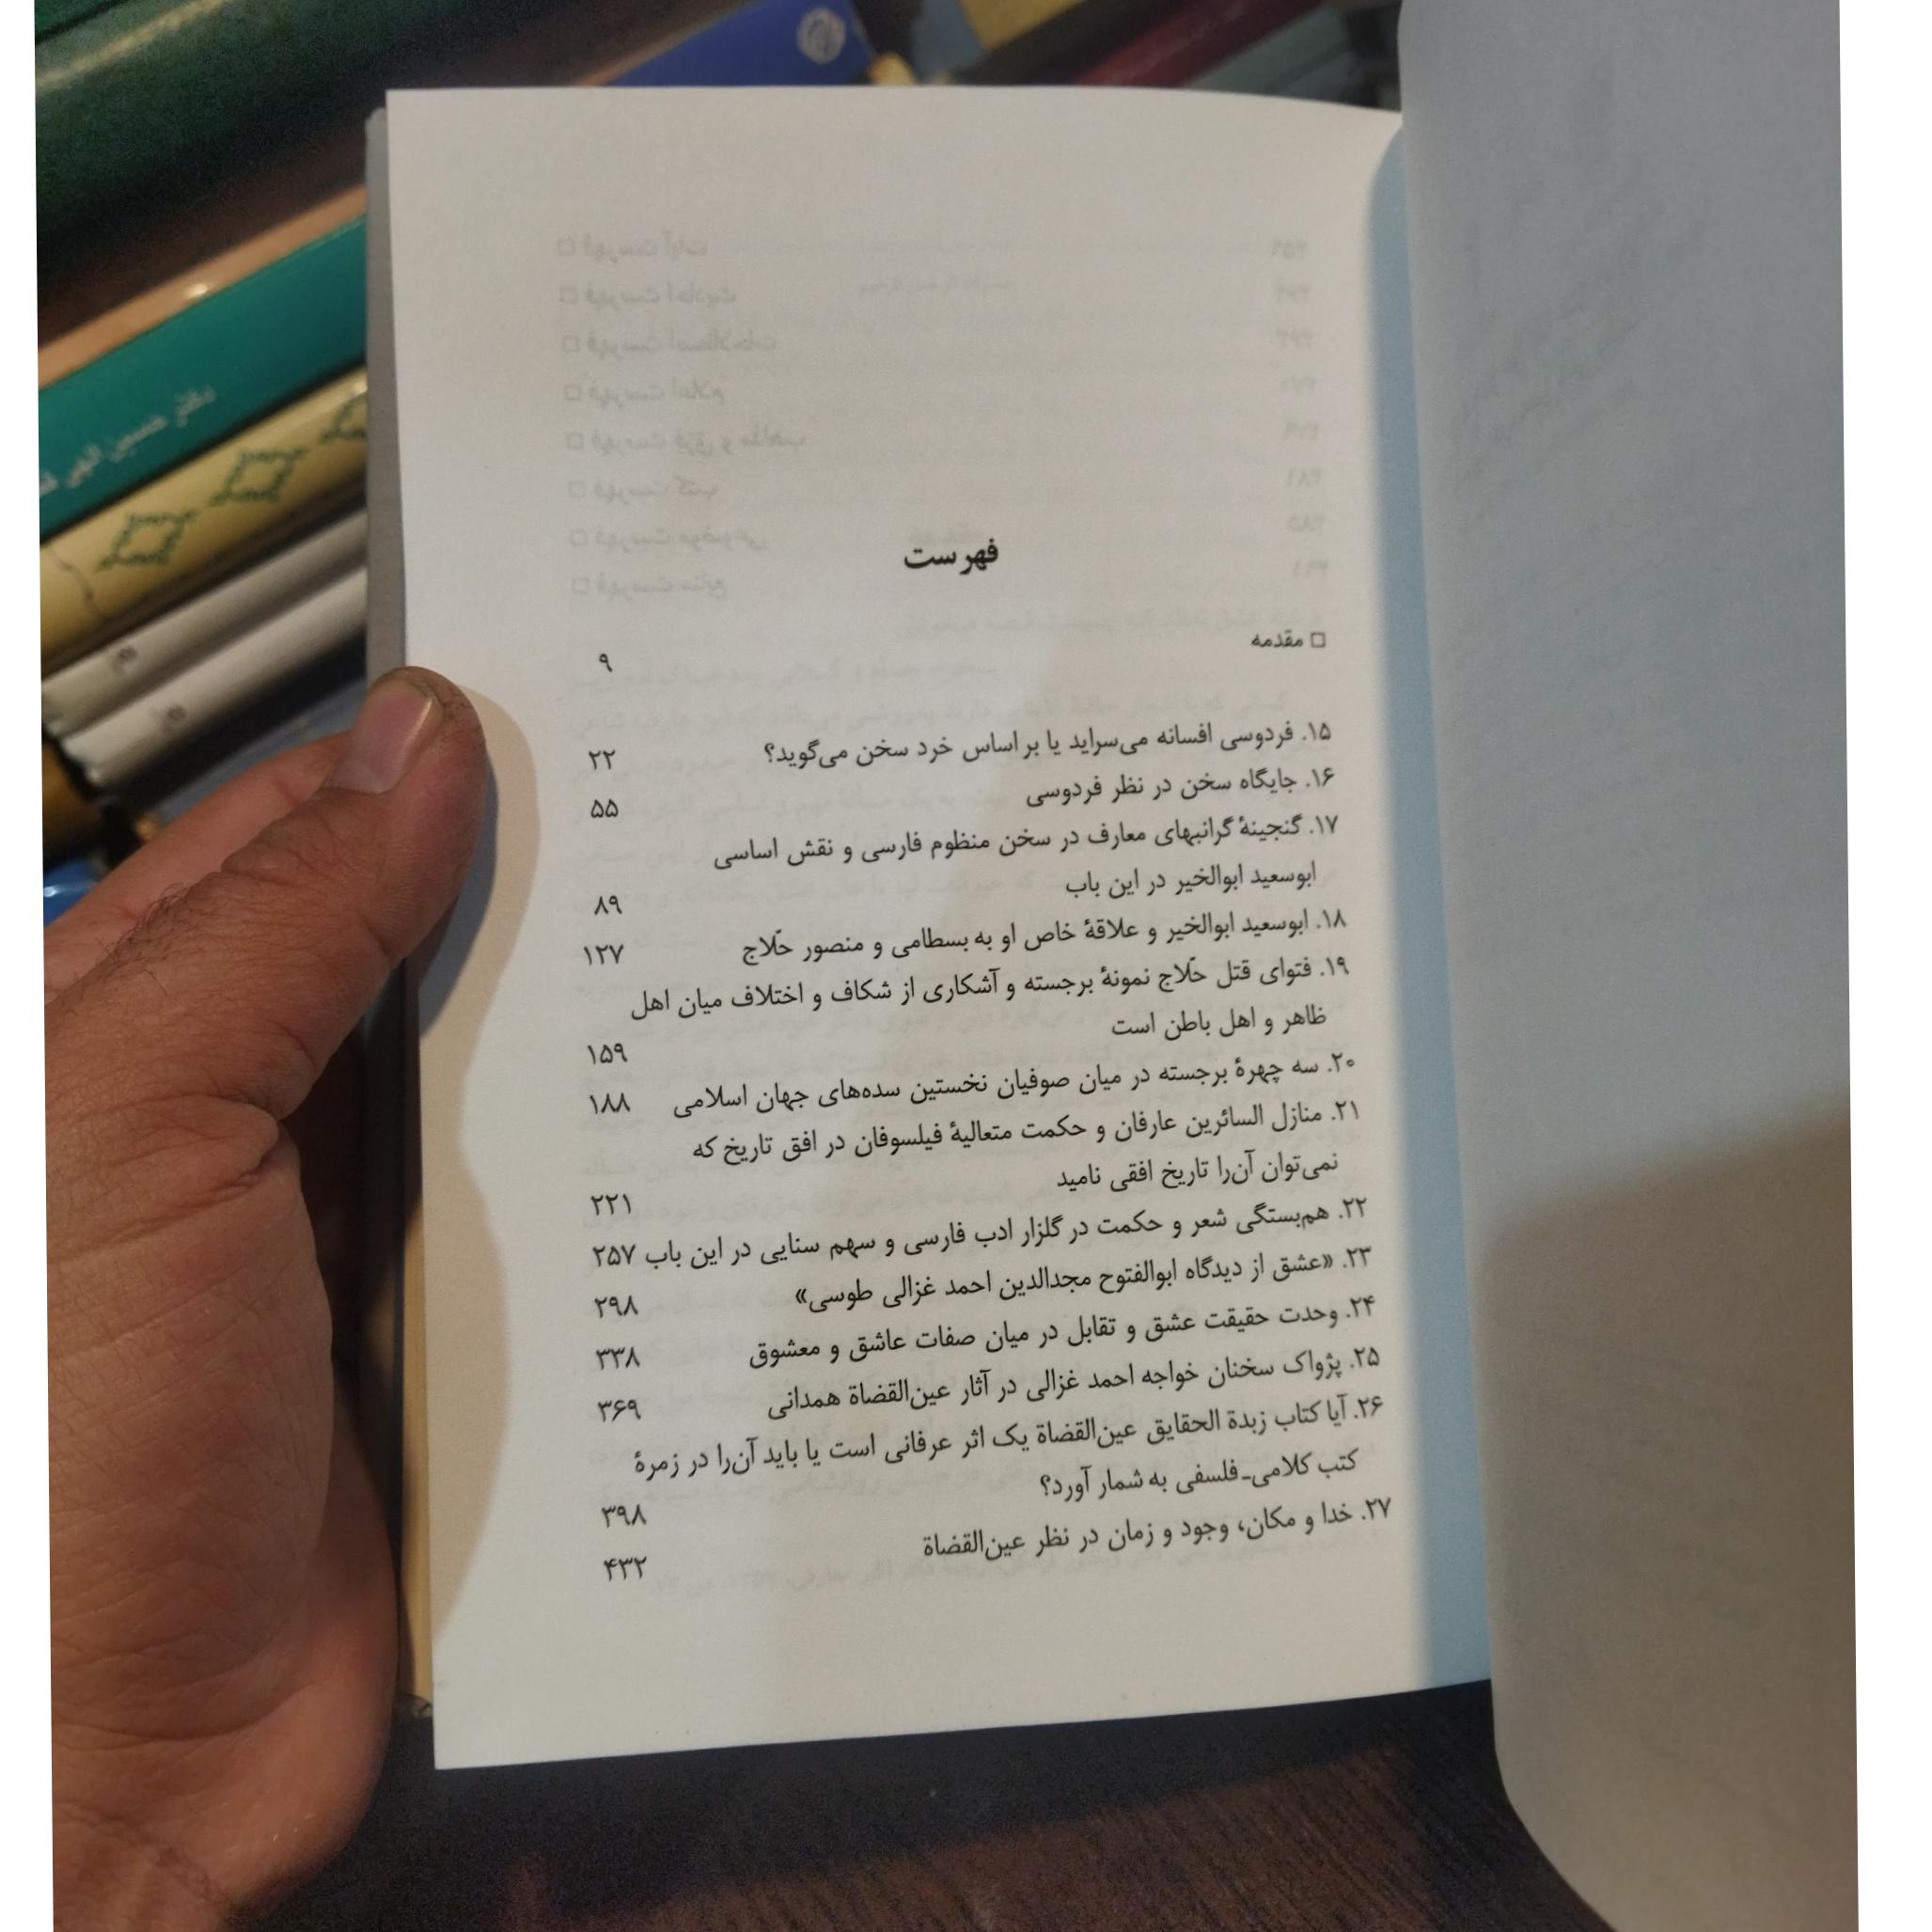 فهرست
□ مقدمه ۹
۱۵. فردوسی افسانه می‌سراید یا بر اساس خرد سخن می‌گوید؟ ۲۲
۱۶. جایگاه سخن در نظر فردوسی ۵۵
۱۷. گنجینهٔ گرانبهای معارف در سخن منظوم فارسی و نقش اساسی
ابوسعید ابوالخیر در این باب ۸۹
۱۸. ابوسعید ابوالخیر و علاقهٔ خاص او به بسطامی و منصور حلّاج ۱۲۷
۱۹. فتوای قتل حلّاج نمونهٔ برجسته و آشکاری از شکاف و اختلاف میان اهل
ظاهر و اهل باطن است ۱۵۹
۲۰. سه چهرهٔ برجسته در میان صوفیان نخستین سده‌های جهان اسلامی ۱۸۸
۲۱. منازل السائرین عارفان و حکمت متعالیهٔ فیلسوفان در افق تاریخ که
نمی‌توان آن‌را تاریخ افقی نامید ۲۲۱
۲۲. هم‌بستگی شعر و حکمت در گلزار ادب فارسی و سهم سنایی در این باب ۲۵۷
۲۳. «عشق از دیدگاه ابوالفتوح مجدالدین احمد غزالی طوسی» ۲۹۸
۲۴. وحدت حقیقت عشق و تقابل در میان صفات عاشق و معشوق ۳۳۸
۲۵. پژواک سخنان خواجه احمد غزالی در آثار عین‌القضاة همدانی ۳۶۹
۲۶. آیا کتاب زبدة الحقایق عین‌القضاة یک اثر عرفانی است یا باید آن‌را در زمرهٔ
کتب کلامی-فلسفی به شمار آورد؟ ۳۹۸
۲۷. خدا و مکان، وجود و زمان در نظر عین‌القضاة ۴۳۲
دکتر حسین الهی